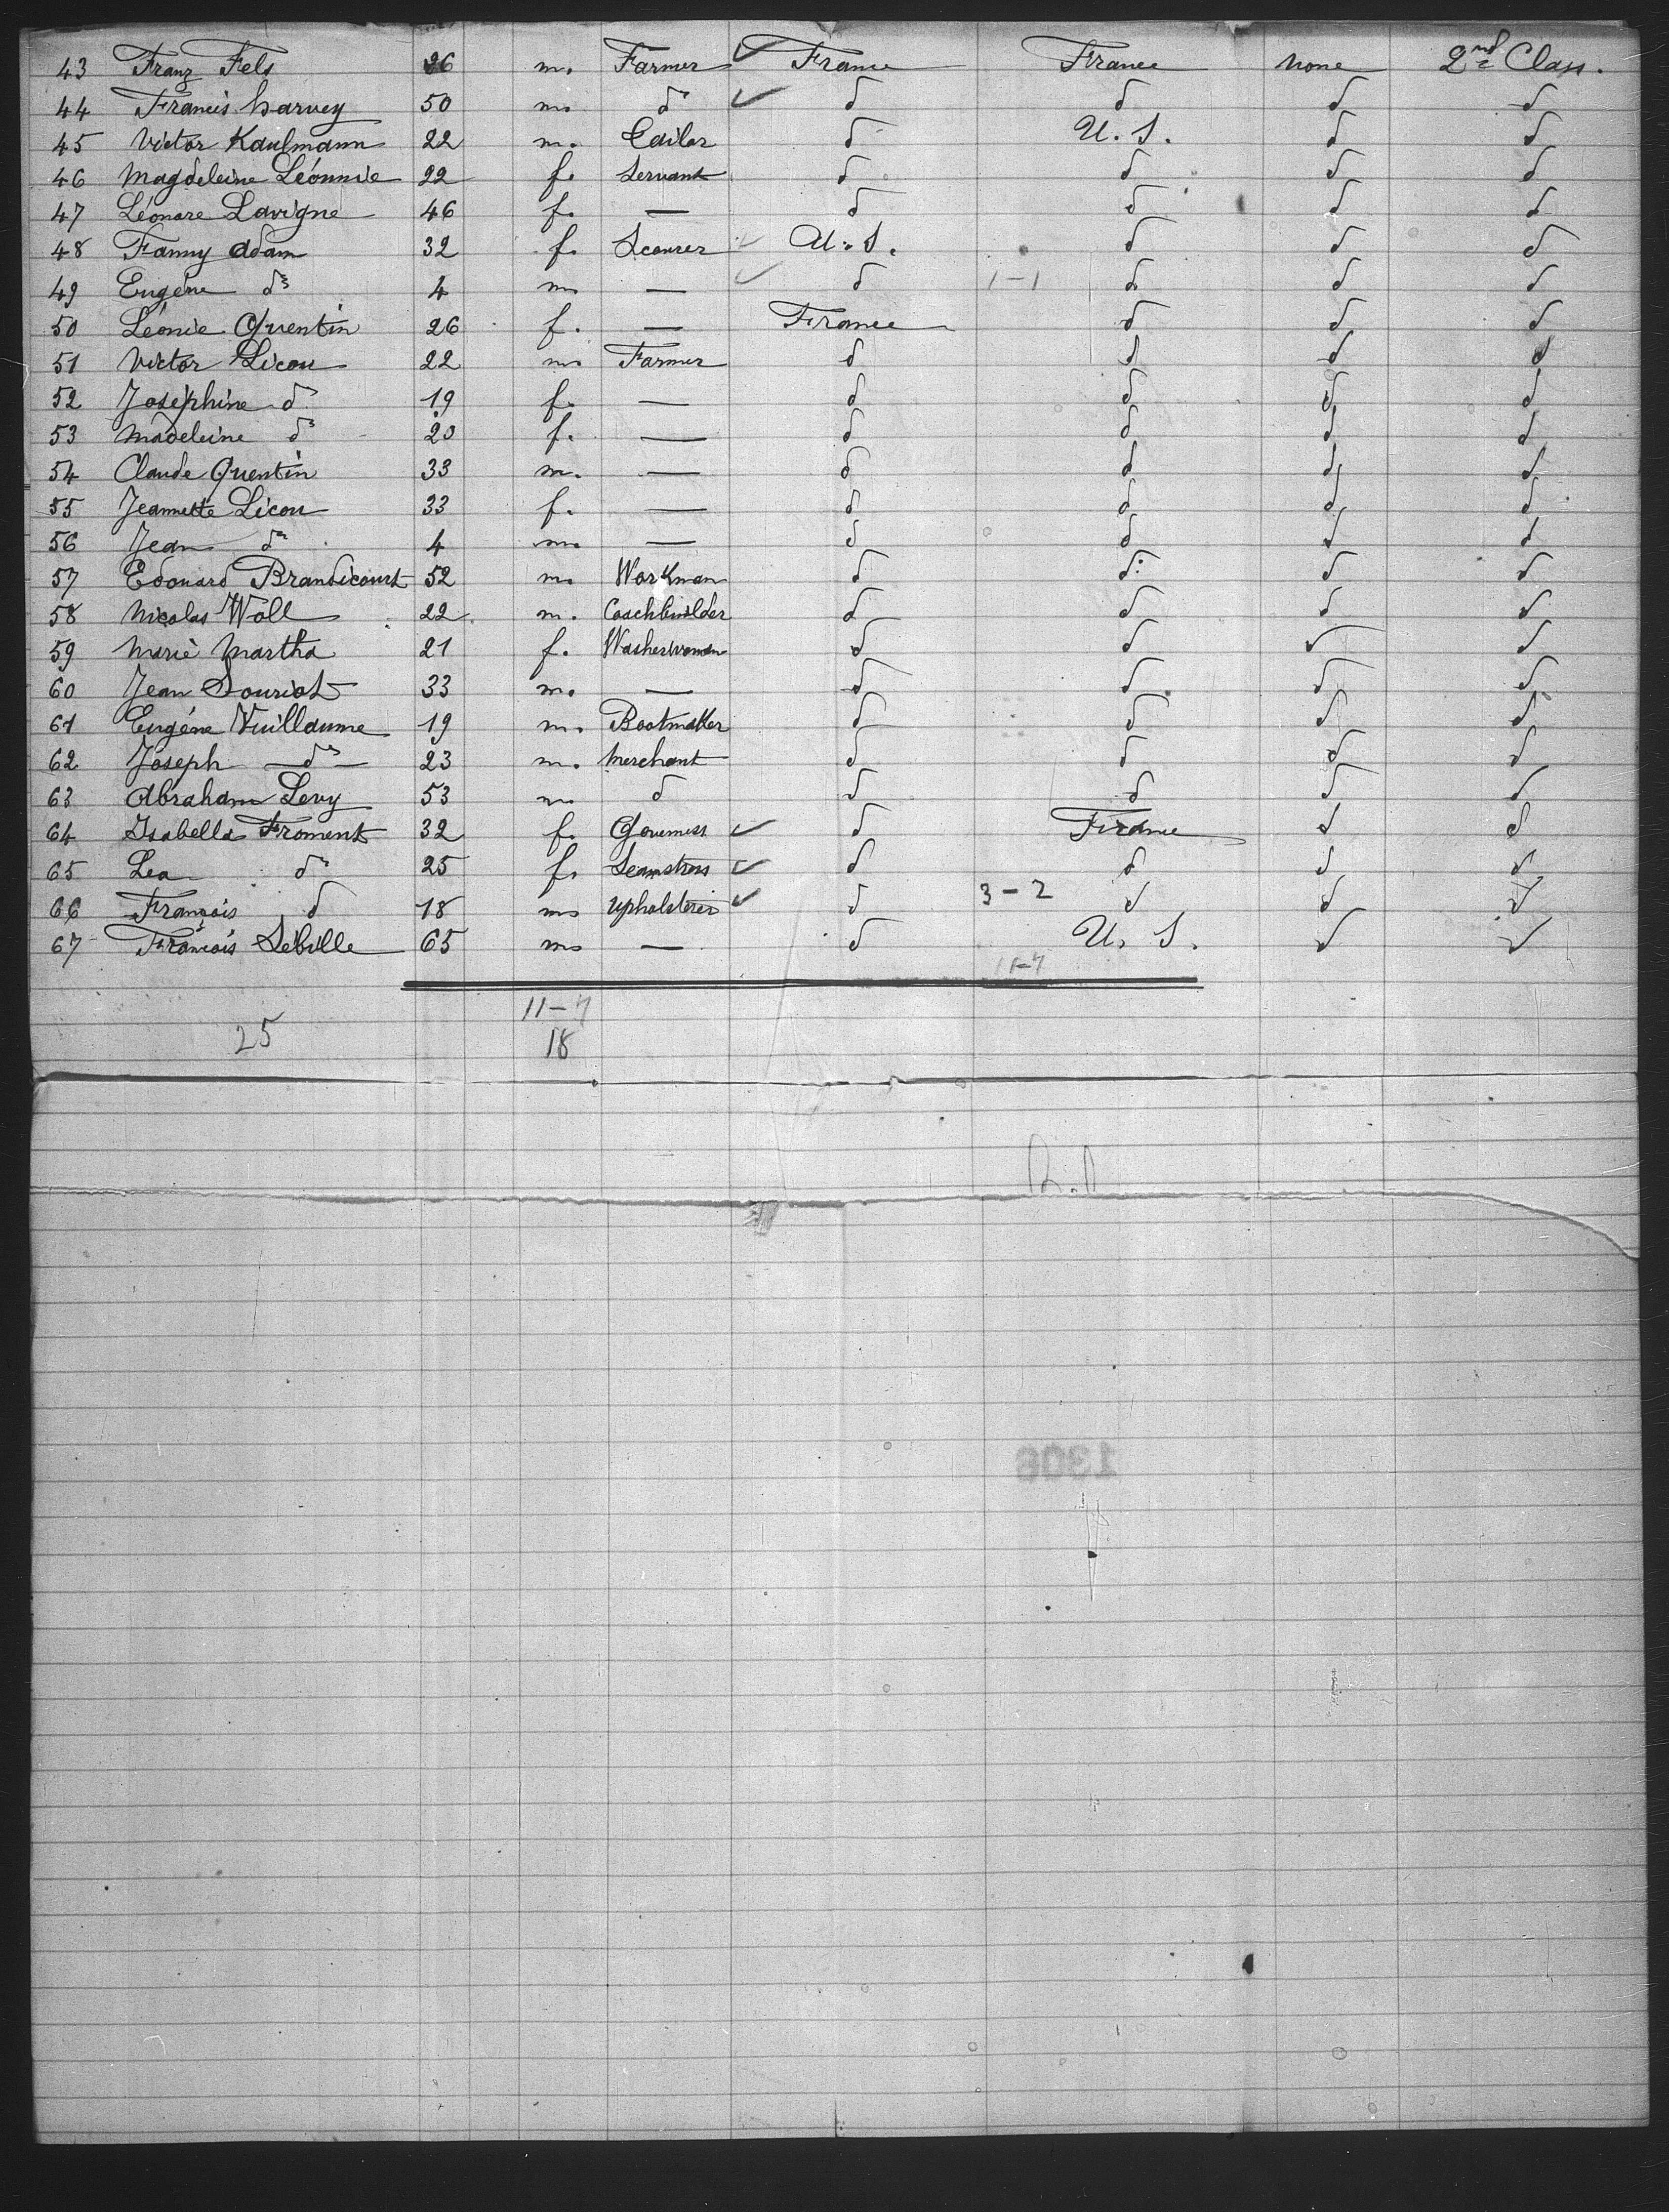 43 Franz Fels 26 m. Farmer ✓ France France none 2nd Class.
44 Francis harvey 50 m. d° ✓ d d d d
45 Victor Kaulmann 22 m. Tailor d U. S. d d
46 Magdeleine Léonnie 22 f. Servant d d d d
47 Léonore Lavigne 46 f. — d d d d
48 Fanny Adam 32 f. Scourer U. S. d d d
49 Eugène d° 4 m — ✓ d 1-1 d d d
50 Léonie Quentin 26 f. — France d d d
51 Victor Licou 22 m. Farmer d d d d
52 Joséphine d° 19 f. — d d d d
53 Madeleine d° 20 f. — d d d d
54 Claude Quentin 33 m. — d d d d
55 Jeannette Licou 33 f. — d d d d
56 Jean d° 4 m. — d d d d
57 Edouard Brandicourt 52 m. Workman d d d d
58 Nicolas Woll 22 m. Coachbuilder d d d d
59 Marie Martha 21 f. Washerwoman d d d d
60 Jean Souriat 33 m. — d d d d
61 Eugène Vuillaume 19 m. Bootmaker d d d d
62 Joseph d° 23 m. Merchant d d d d
63 Abraham Levy 53 m d d d d d
64 Isabella Froment 32 f. Governess ✓ d France d d
65 Lea d° 25 f. Seamstress ✓ d d d d
66 François d 18 m Upholsterer ✓ d 3-2 d d d
67 François Sebille 65 m — d U. S. d d
11-7
11-7
25 18
1306